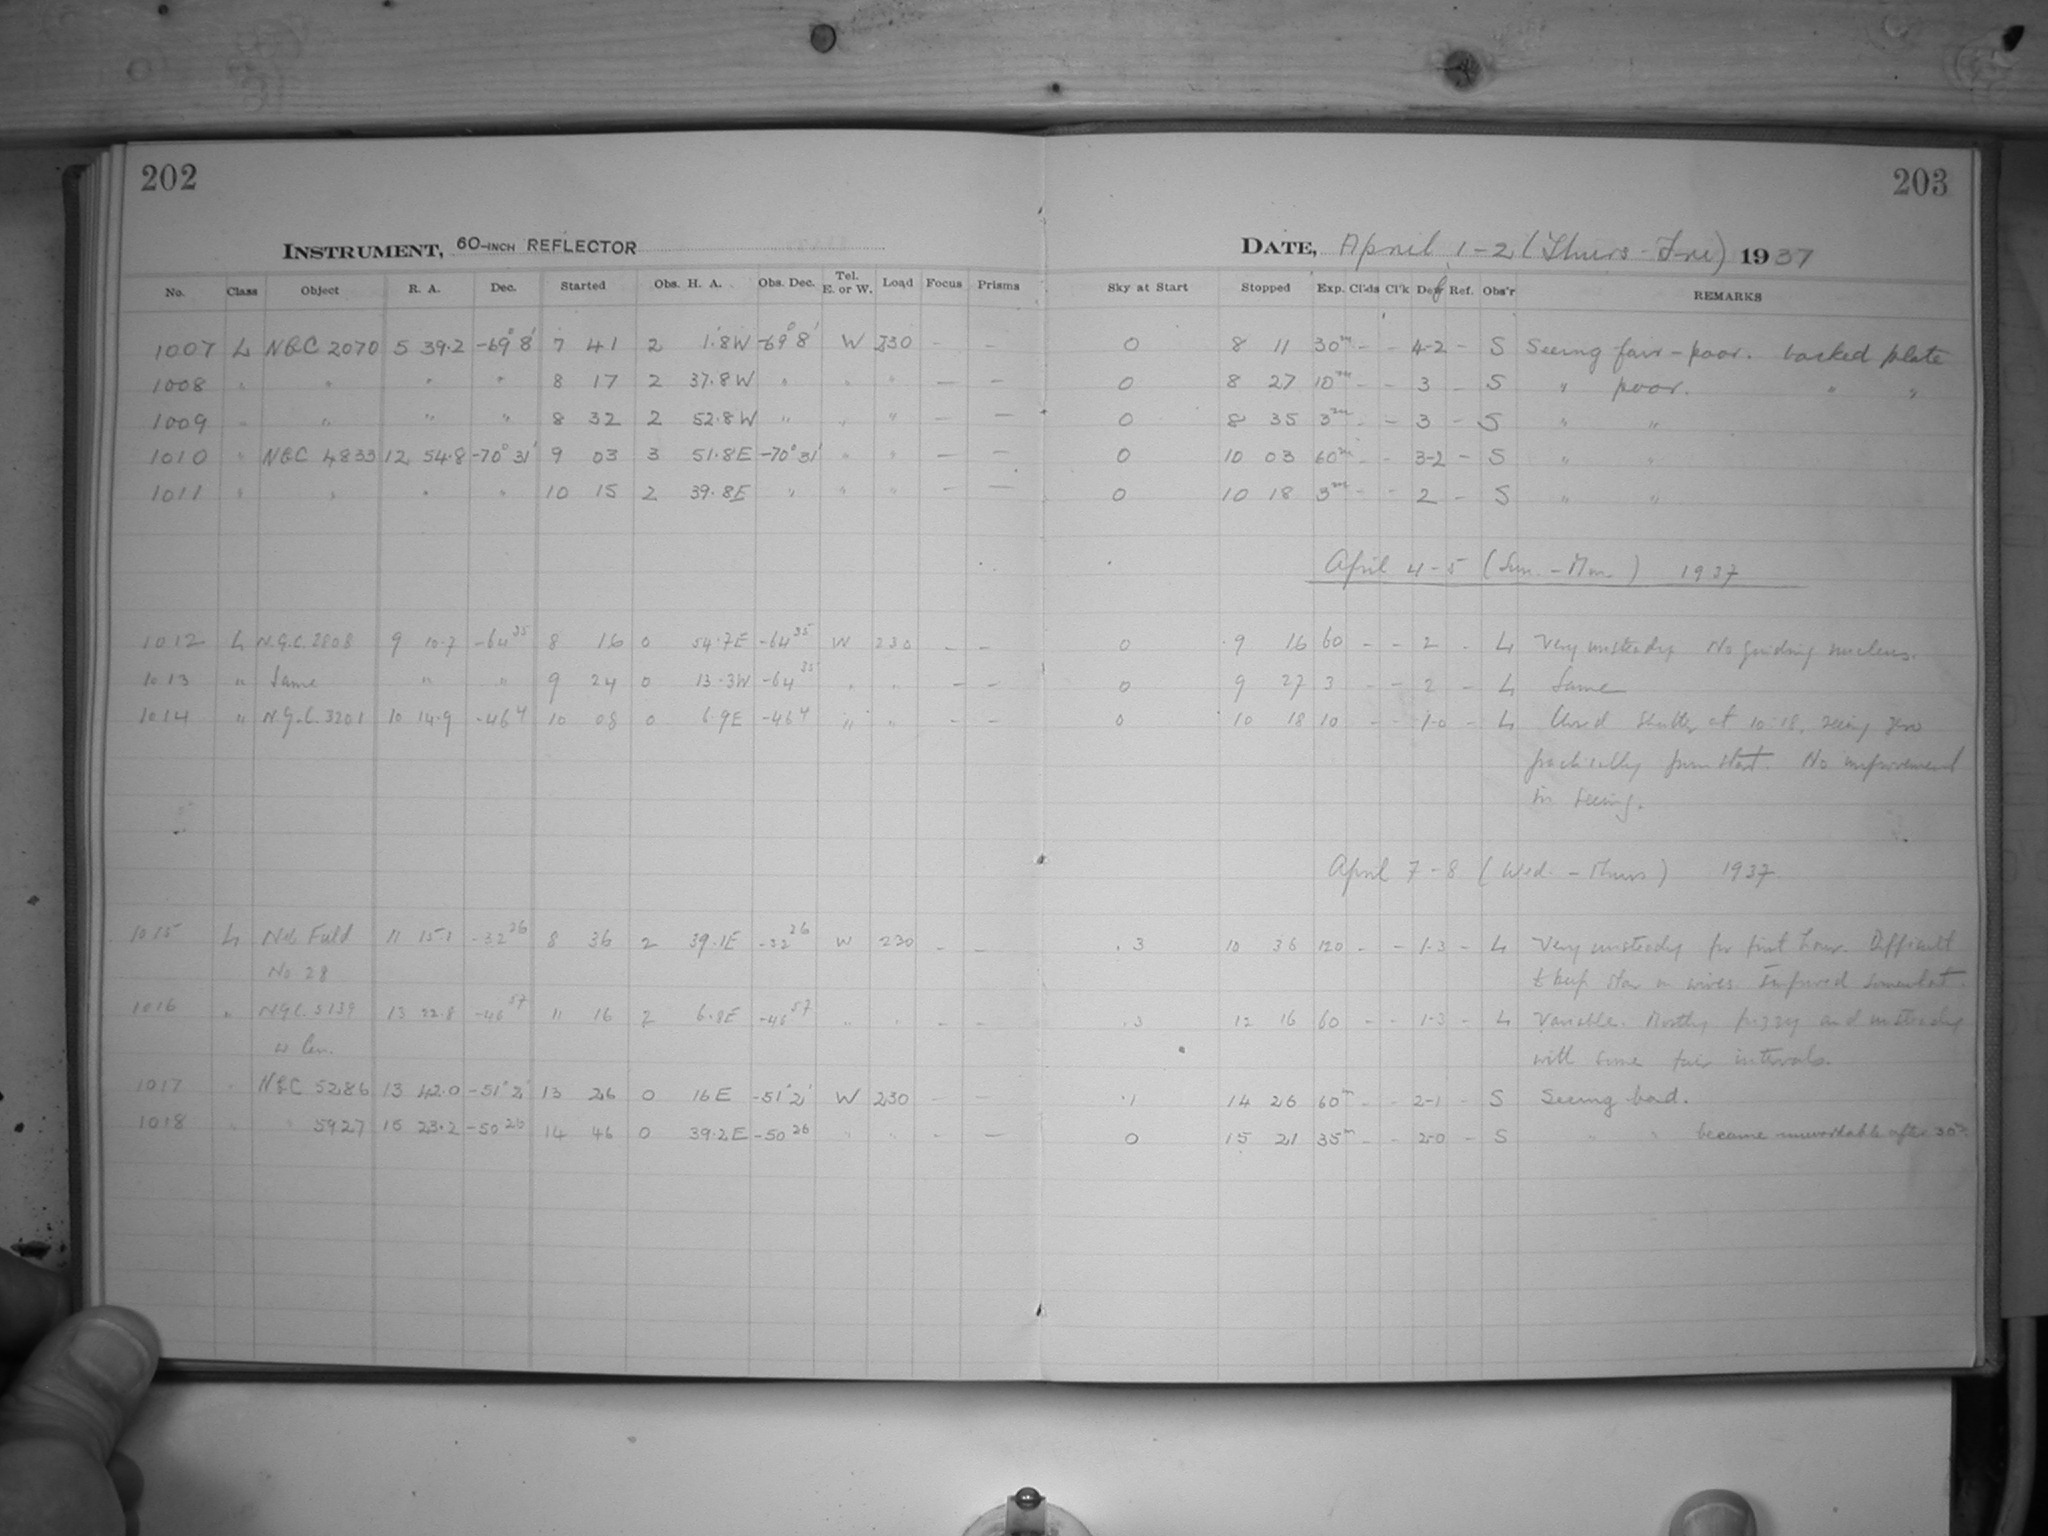 202
203
INSTRUMENT, 60-INCH REFLECTOR
DATE, April 1-2 (Thurs-Fri) 1937
No. Class Object R. A. Dec. Started Obs. H. A. Obs. Dec. Tel. E. or W. Load Focus Prisms Sky at Start Stopped Exp. Cl'ds Cl'k Def Ref. Obs'r REMARKS
1007 L NGC 2070 5 39.2 -69° 8' 7 41 2 1.8W -69° 8' W 230 - - 0 8 11 30m - - 4-2 - S Seeing fair-poor. backed plate
1008 " " " " 8 17 2 37.8W " " " - - 0 8 27 10m - - 3 - S " poor. " "
1009 " " " " 8 32 2 52.8W " " " - - 0 8 35 3m - - 3 - S " "
1010 " NGC 4833 12 54.8 -70° 31' 9 03 3 51.8E -70° 31' " " - - 0 10 03 60m - - 3-2 - S " "
1011 " " " " 10 15 2 39.8E " " " - - 0 10 18 3m - - 2 - S " "
April 4-5 (Sun. - Mon.) 1937
1012 L N.G.C. 2808 9 10.7 -64 35 8 16 0 54.7E -64 35 W 230 - - 0 9 16 60 - - 2 - L Very unsteady No guiding nucleus.
1013 " Same " " 9 24 0 13.3W -64 35 " " - - 0 9 27 3 - - 2 - L Same
1014 " N.G.C. 3201 10 14.9 -46 4 10 08 0 6.9E -46 4 " " - - 0 10 18 10 - - 1-0 - L Closed shutter at 10:18, seeing zero
practically from start. No improvement
in seeing.
April 7-8 (Wed. - Thurs) 1937
1015 L Neb Field 11 15.1 -32 26 8 36 2 39.1E -32 26 W 230 - - .3 10 36 120 - - 1-3 - L Very unsteady for first hour. Difficult
No 28 to keep star on wires. Improved somewhat.
1016 " NGC. 5139 13 22.8 -46 57 11 16 2 6.8E -46 57 " " - - .3 12 16 60 - - 1-3 - L Variable. Mostly fuzzy and unsteady
w Cen. with some fair intervals.
1017 " NGC 5286 13 42.0 -51° 2' 13 26 0 16E -51° 2' W 230 - - .1 14 26 60m - - 2-1 - S Seeing bad.
1018 " " 5927 15 23.2 -50 26 14 46 0 39.2E -50 26 " " - - 0 15 21 35m - - 2-0 - S " " became unworkable after 30m